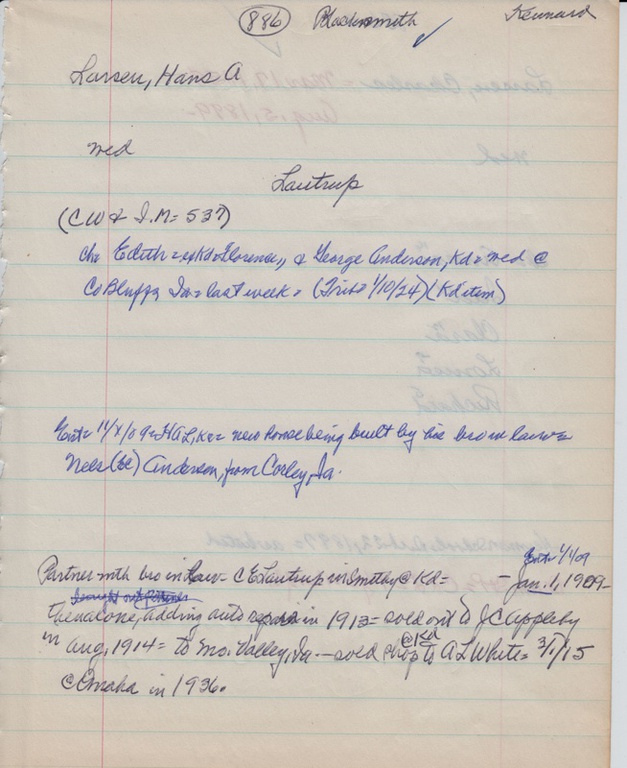 886 Blacksmith ✓ Kennard
Larsen, Hans A
med
Lautrup
(CW & I.M= 537)
ch= Edith = Florence, & George Anderson, Kd = med @
Co Bluffs, Ia = last week = (Trib= 1/10/24) (Kd item)
Ent= 11/ /09 = HAL, = new house being built by his bro in law =
Nels Anderson, from Corley, Ia.
Ent= 1/1/09
Partner with bro in Law = C E Lautrup in Smithy @ Kd = - Jan. 1, 1909-
then alone, adding auto repair in 1913 = sold out to J C Appleby
in Aug, 1914 = to Mo. Valley, Ia - sold shop @ Kd to A L White = 3/1/15
@ Omaha in 1936.